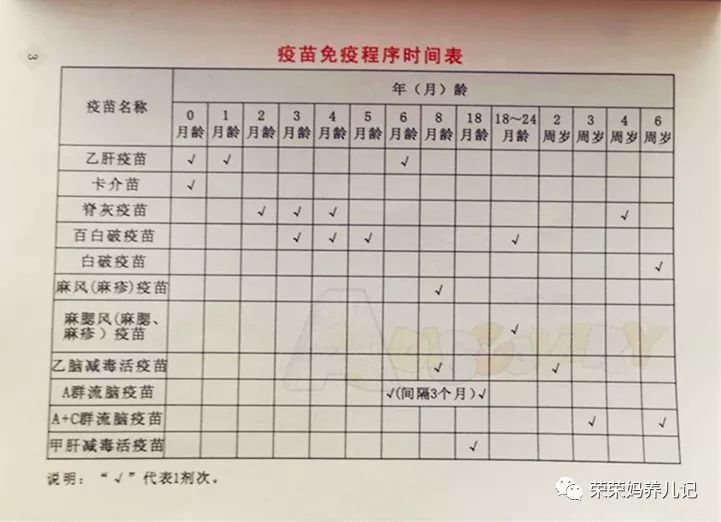 3
疫苗免疫程序时间表
疫苗名称 年(月)龄
0月龄 1月龄 2月龄 3月龄 4月龄 5月龄 6月龄 8月龄 18月龄 18~24月龄 2周岁 3周岁 4周岁 6周岁
乙肝疫苗 √ √ √
卡介苗 √
脊灰疫苗 √ √ √ √
百白破疫苗 √ √ √ √
白破疫苗 √
麻风(麻疹)疫苗 √
麻腮风(麻腮、
麻疹)疫苗 √
乙脑减毒活疫苗 √ √
A群流脑疫苗 √(间隔3个月)√
A+C群流脑疫苗 √ √
甲肝减毒活疫苗 √
说明：“√”代表1剂次。
荣荣妈养儿记